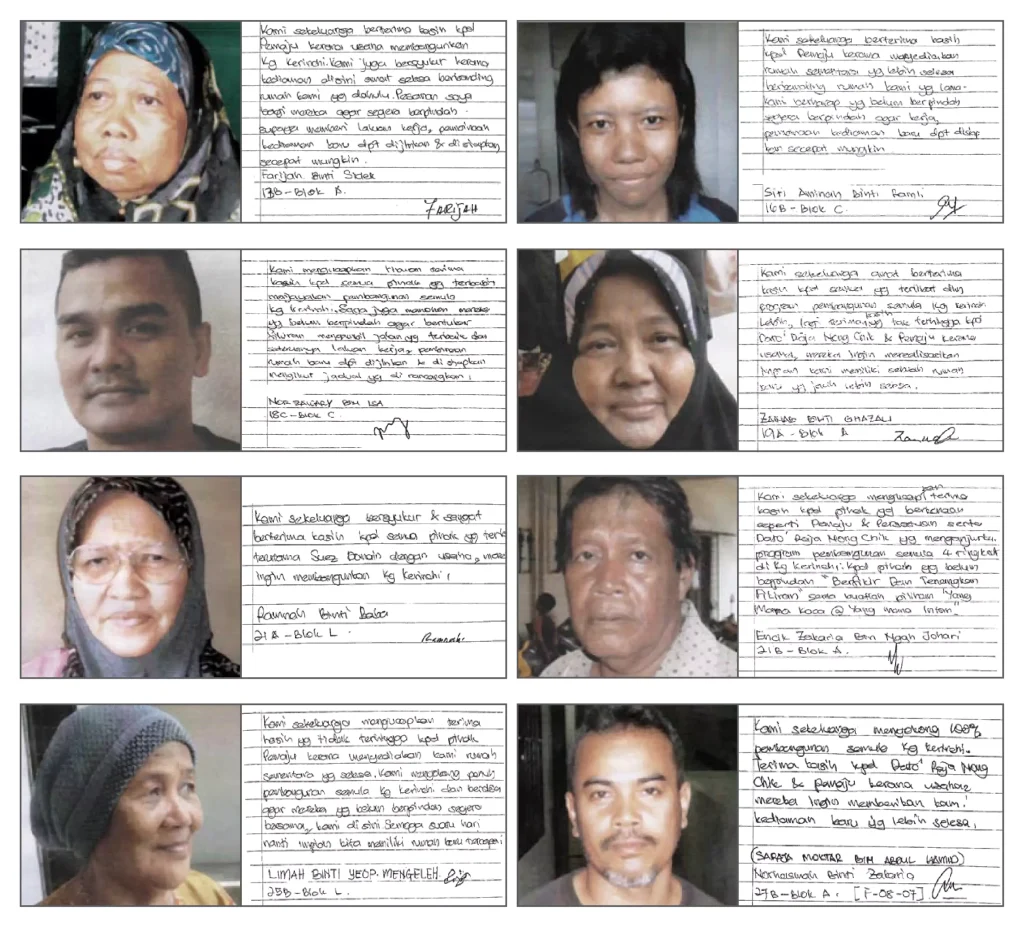 Kami sekeluarga berterima kasih kpd
Pemaju kerana usaha membangunkan
Kg Kerinchi. Kami juga bersyukur kerana
kediaman disini amat selesa berbanding
rumah kami yg dahulu. Pesanan saya
bagi mereka agar segera berpindah
supaya memberi laluan kerja, pembinaan
kediaman baru dpt dijlnkan & di siapkan
secepat mungkin.
Farijah Binti Sidek
13B - Blok A.
FARIJAH
Kami sekeluarga berterima kasih
kpd Pemaju kerana menyediakan
rumah sementara yg lebih selesa
berbanding rumah kami yg lama.
Kami berharap yg belum berpindah
segera berpindah agar kerja,
pembinaan kediaman baru dpt disiap
kan secepat mungkin.
Siti Aminah Binti Ramli
16B - Blok C.
Kami mengucapkan ribuan terima
kasih kpd semua pihak yg terbabit
menjayakan pembangunan semula
Kg Kerinchi. Saya juga memohon mereka
yg belum berpindah agar bertukar
fikiran mengambil jalan yg terbaik dan
seterusnya laluan kerja, pembinaan
rumah baru dpt dijlnkan & di siapkan
mengikut jadual yg di rancangkan.
NORZAWARY BIN ISA
18C - BLOK C
Kami sekeluarga amat berterima
kasih kpd semua yg terlibat dlm
program pembangunan semula Kg Kerinchi
Lebih, lagi terima kasih yg tak terhingga kpd
Dato' Raja Nong Chik & Pemaju kerana
usaha, mereka ingin merealisasikan
impian kami memiliki sebuah rumah
baru yg jauh lebih selesa.
ZAINAB BINTI GHAZALI
19A - Blok A
Kami sekeluarga bersyukur & sangat
berterima kasih kpd semua pihak yg terli
terutama Suez Domain dengan usaha, mere
ingin membangunkan Kg Kerinchi.
Ramnah Binti Baba
21A - Blok L.
Kami sekeluarga mengucapkan terima
kasih kpd pihak yg berkenaan
seperti Pemaju & Persatuan serta
Dato' Raja Nong Chik yg menganjurkn
program pembangunan semula 4 tingkat
di Kg Kerinchi. Kpd pihak yg belum
berpindah "Berfikir Dan Tenangkan
Fikiran" sama buatlah pilihan "Yang
Mana Kaca @ Yang mana Intan"
Encik Zakaria Bin Ngah Johari
21B - Blok A.
Kami sekeluarga mengucapkan terima
kasih yg tidak terhingga kpd pihak
Pemaju kerana menyediakan kami rumah
sementara yg selesa. Kami menyokong penuh
pembangunan semula Kg Kerinchi dan berdoa
agar mereka yg belum berpindah segera
bersama, kami di sini Semoga suatu hari
nanti impian kita memiliki rumah baru tercapai
LIMAH BINTI YEOP. MENGELEH.
25B - Blok L.
Kami sekeluarga menyokong 100%
pembangunan semula Kg Kerinchi.
Terima kasih kpd Dato' Raja Nong
Chik & Pemaju kerana usaha
mereka ingin memberikan kami
kediaman baru yg lebih selesa,
(SARAJA MOKTAR BIN ABDUL HAMID)
Norhaiswan Binti Zakaria
27B - Blok A. [F-08-07]